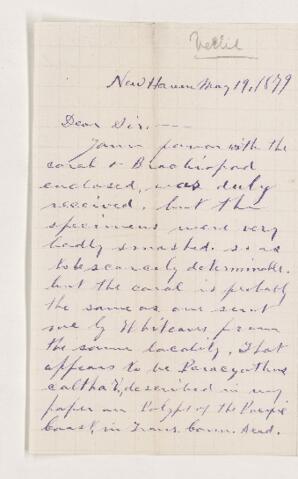 Verrill
New Haven May 19, 1879
Dear Sir. —
Your favor with the
coral & Brachiopod
enclosed, was duly
received, but the
specimens were very
badly smashed. so as
to be scarcely determinable.
but the coral is probably
the same as one sent
me by Whiteaves from
the same locality. That
appears to be Paracyathus
caltha V., described in my
paper on Polyps of the Pacific
Coast, in Trans. Conn. Acad.